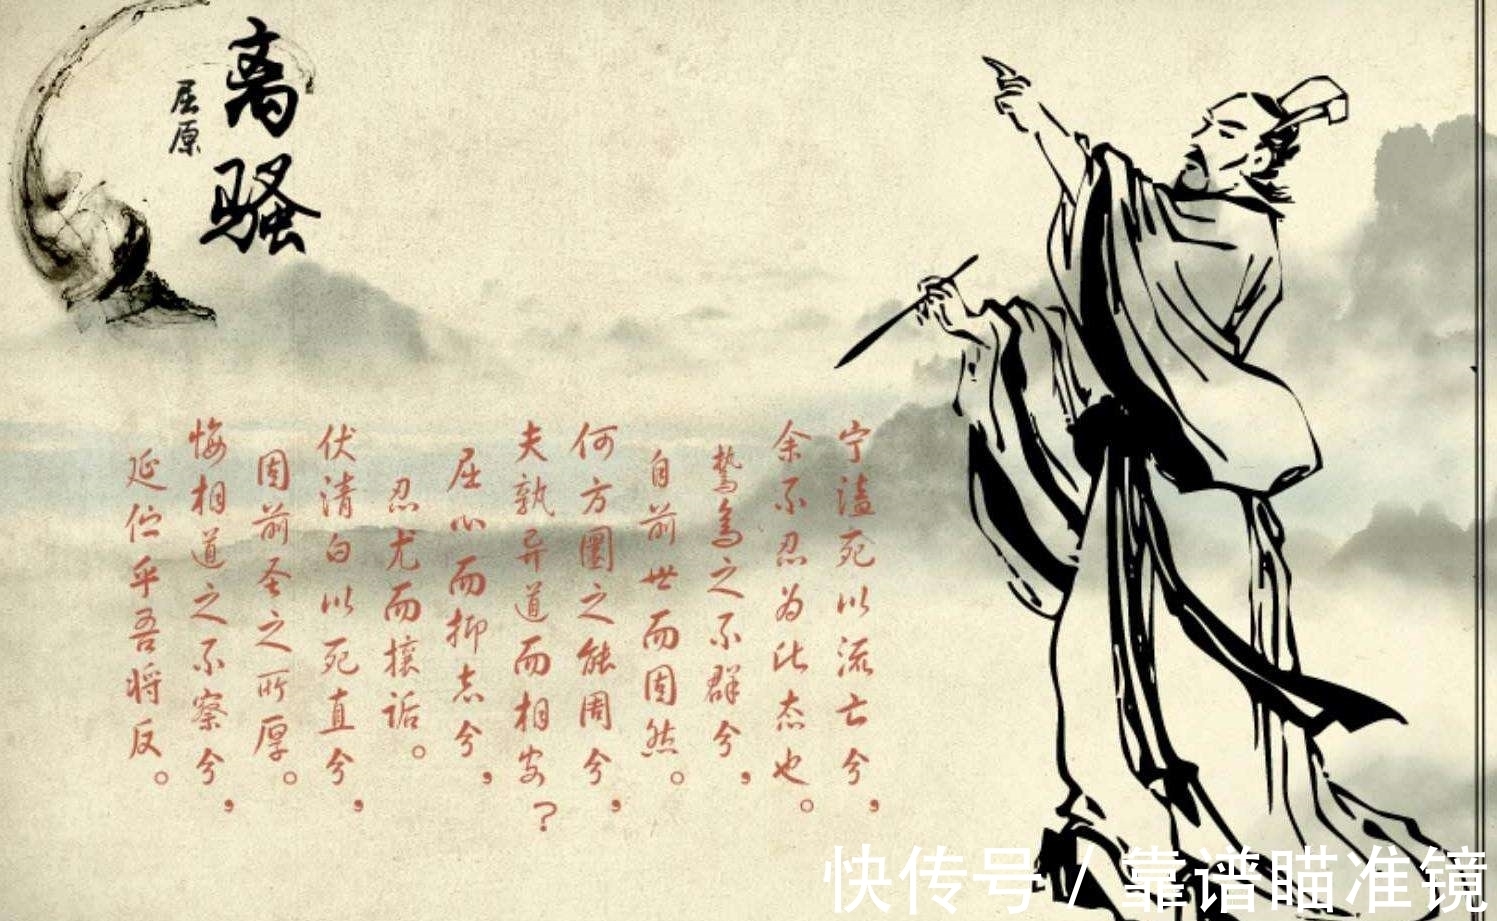 离骚
屈原
宁溘死以流亡兮，
余不忍为此态也。
鸷鸟之不群兮，
自前世而固然。
何方圜之能周兮，
夫孰异道而相安？
屈心而抑志兮，
忍尤而攘诟。
伏清白以死直兮，
固前圣之所厚。
悔相道之不察兮，
延伫乎吾将反。
快传号 / 靠谱瞄准镜